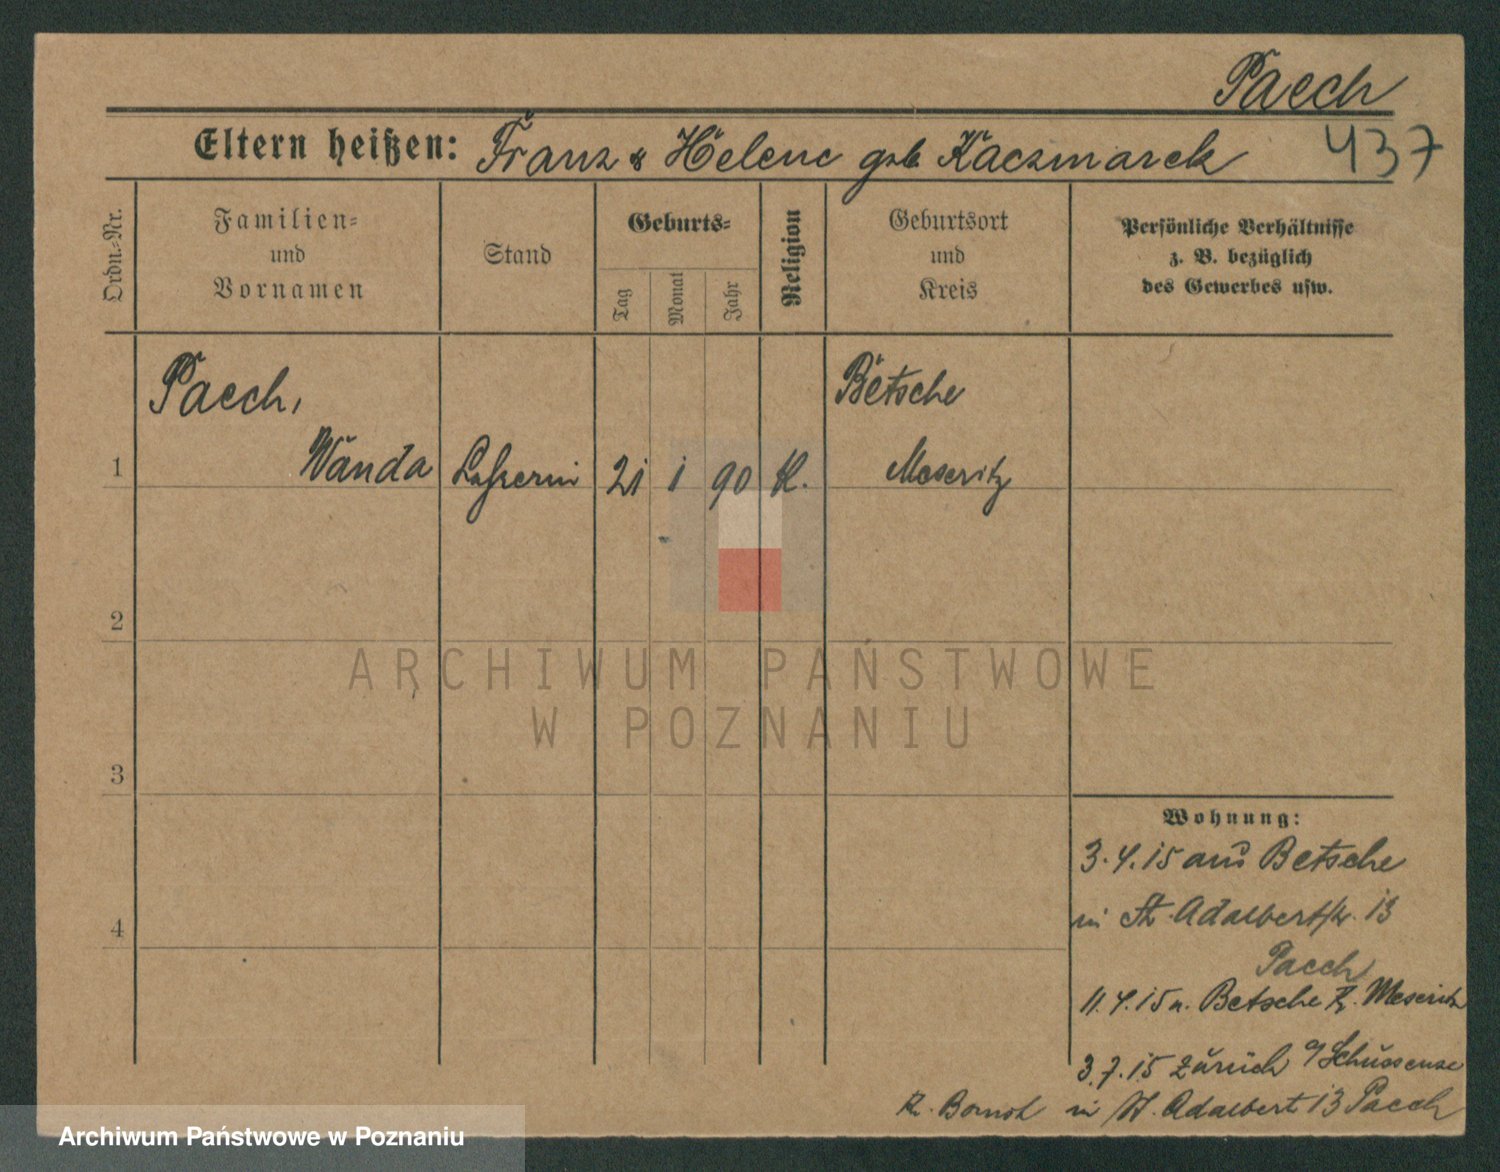 Paech
Eltern heißen: Franz & Helene geb Kaczmarek
437
Ordn.=Nr.
Familien=
und
Vornamen
Stand
Geburts=
Tag
Monat
Jahr
Religion
Geburtsort
und
Kreis
Persönliche Verhältnisse
z. B. bezüglich
des Gewerbes usw.
Paech,
Wanda
21 1 90 K.
Betsche
Meseritz
1
2
3
4
ARCHIWUM PAŃSTWOWE
W POZNANIU
Wohnung:
3.4.15 aus Betsche
in St. Adalbertstr. 13
Paech
11.4.15 n. Betsche Kr. Meseritz
3.7.15 zurück
Kr. Bomst in St. Adalbert 13 Paech
Archiwum Państwowe w Poznaniu